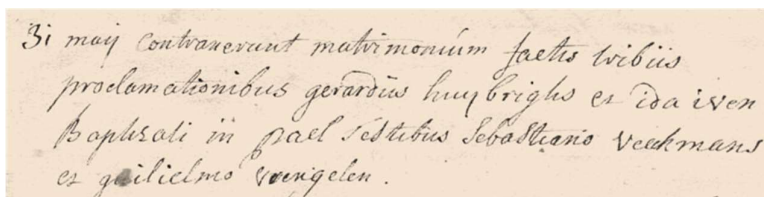 3i maij contraxerunt matrimonium factis tribus
proclamationibus gerardus huybrighs et ida iven
Baptizati in pael Testibus Sebastiano Veekmans
et guilielmo